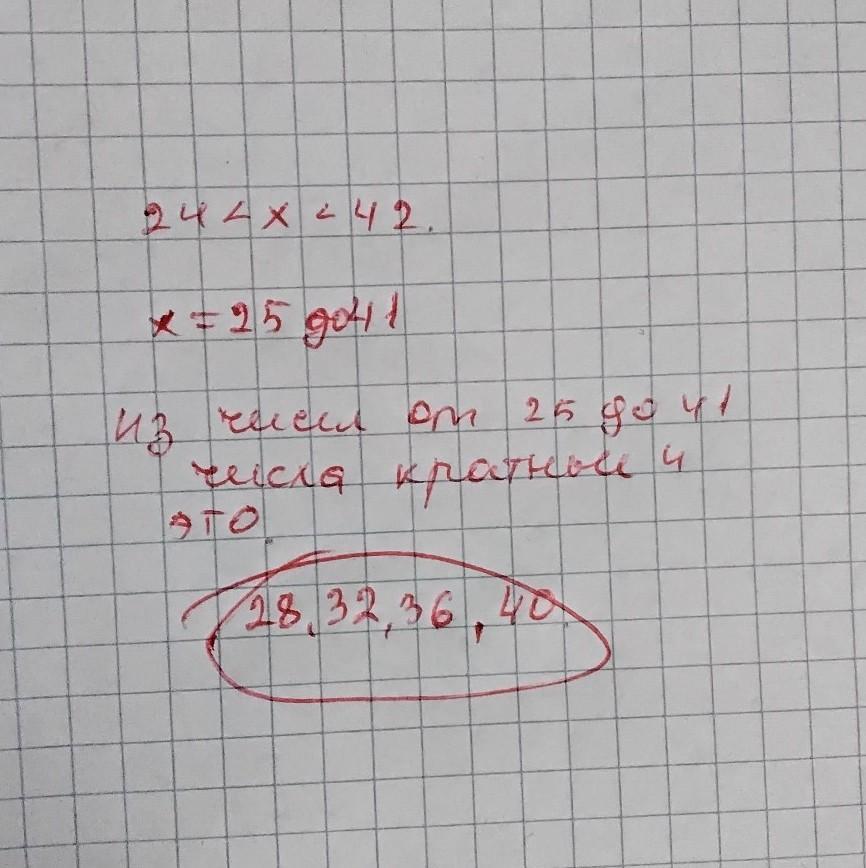 24 < x < 42.
x = 25 до 41
из чисел от 25 до 41
числа кратные 4
это
28, 32, 36, 40